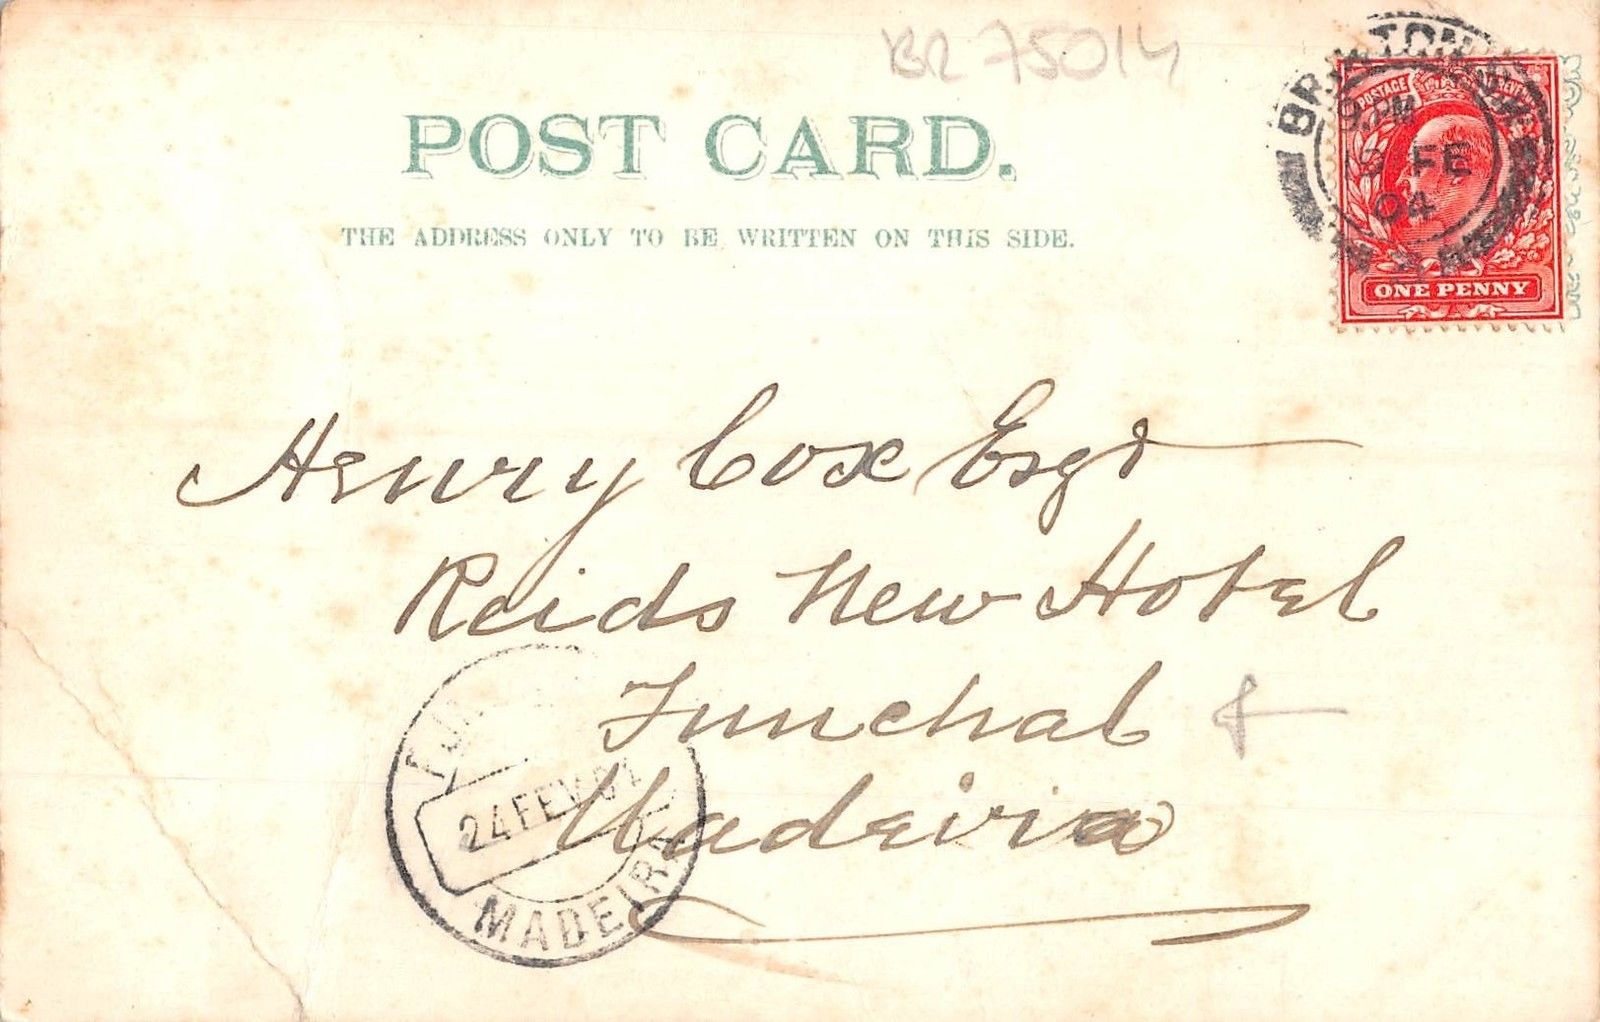 BR 75014
POST CARD.
THE ADDRESS ONLY TO BE WRITTEN ON THIS SIDE.
POSTAGE
ONE PENNY
PM
FE
04
Henry Cox Esqr
Reids New Hotel
Funchal
Madeira
24 FEV 04
MADEIRA